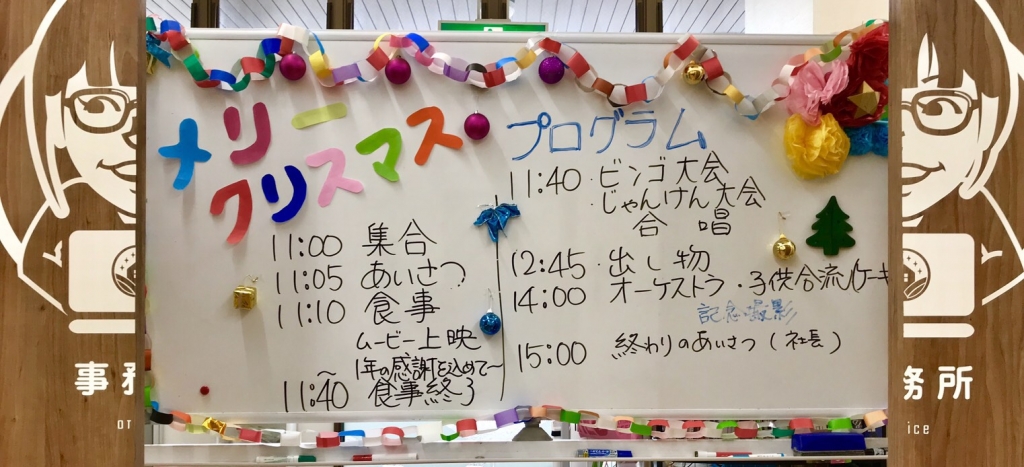 メリー
クリスマス
11:00 集合
11:05 あいさつ
11:10 食事
ムービー上映
1年の感謝を込めて〜
〜
11:40 食事終了
プログラム
11:40 ・ビンゴ大会
・じゃんけん大会
合唱
12:45 ・出し物
14:00 オーケストラ・子供合流/ケーキ
記念撮影
15:00 終わりのあいさつ(社長)
事務
務所
or
ice